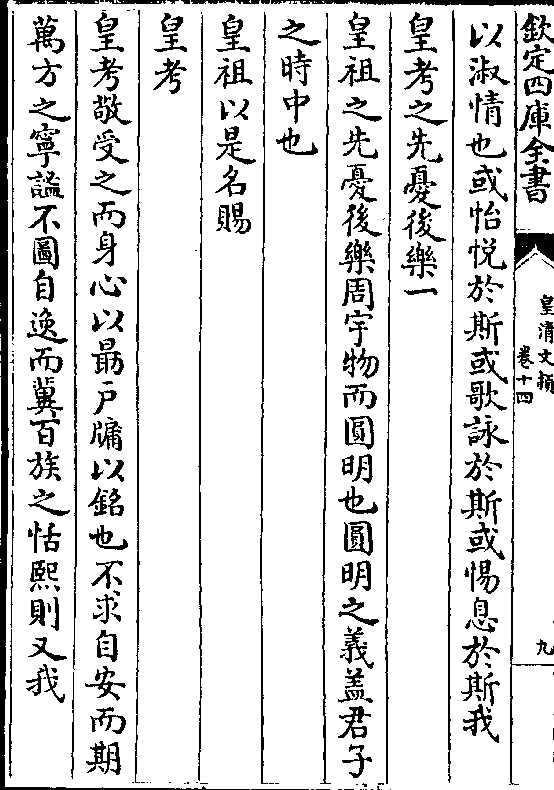 欽定四庫全書
皇清文穎
卷十四
九
以淑情也或怡悅於斯或歌詠於斯或惕息於斯我
皇考之先憂後樂一
皇祖之先憂後樂周宇物而圓明也圓明之義蓋君子
之時中也
皇祖以是名賜
皇考
皇考敬受之而身心以勗戶牖以銘也不求自安而期
萬方之寧謐不圖自逸而冀百族之恬熙則又我